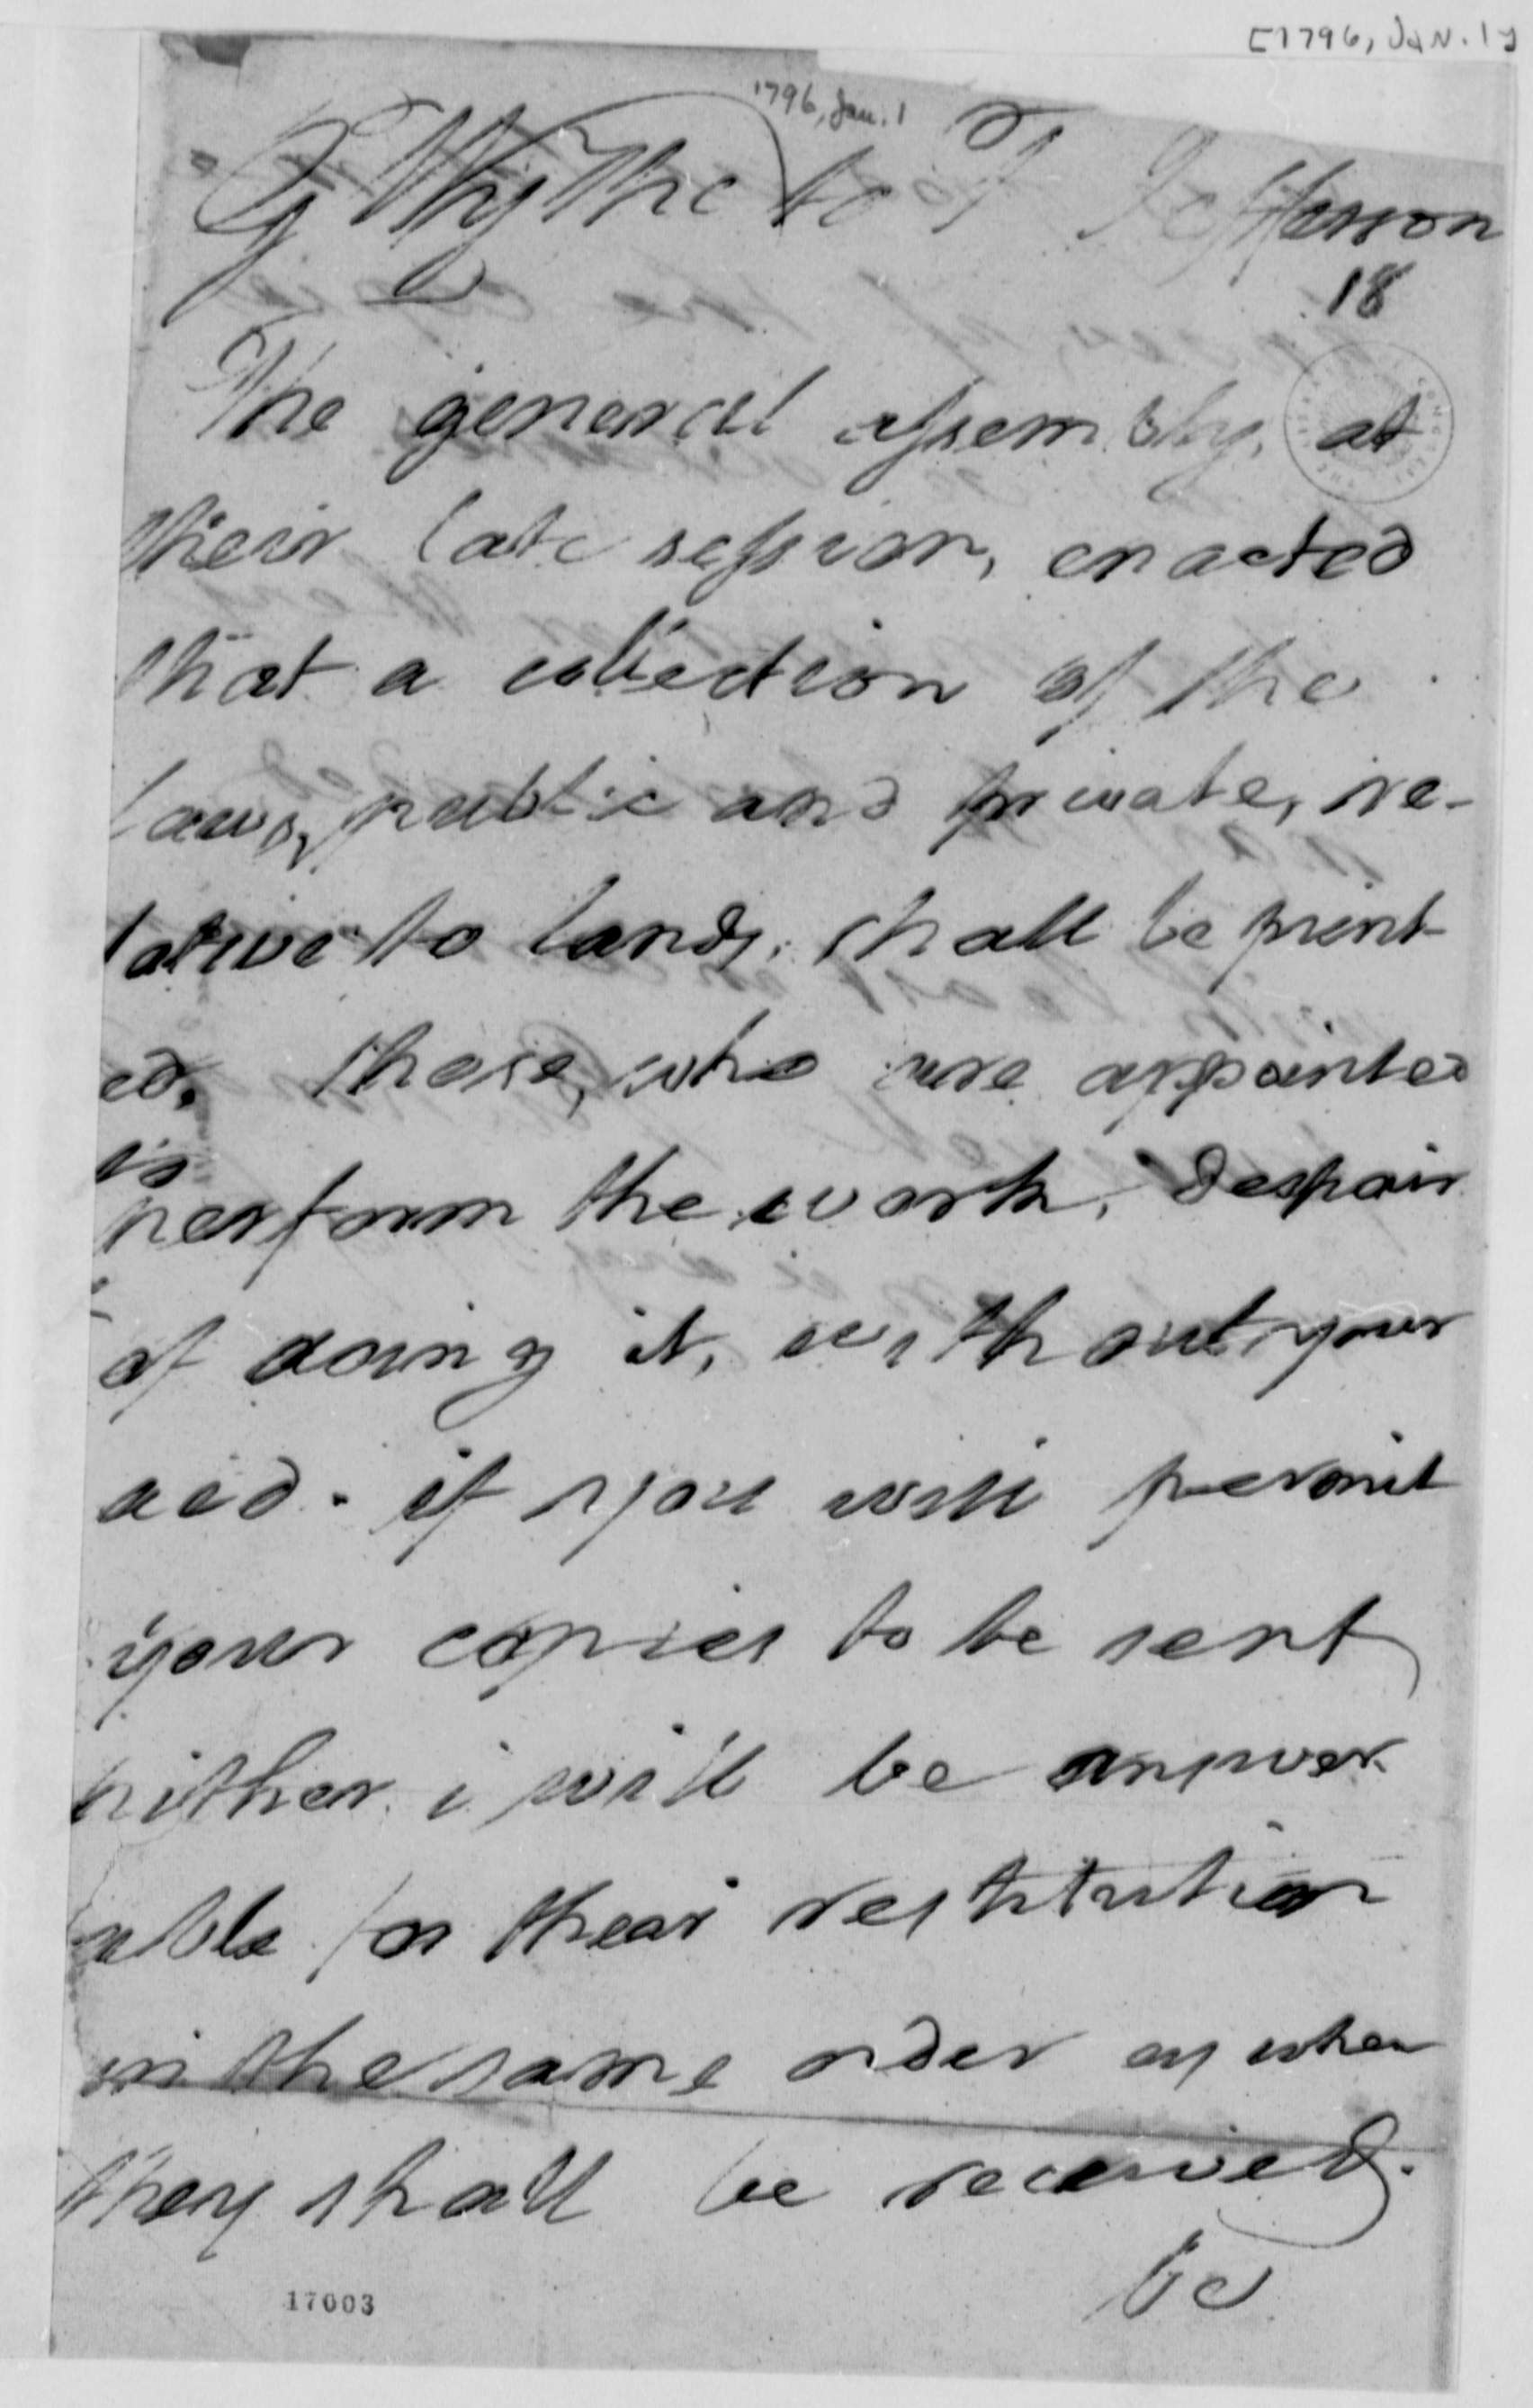 [1796, Jan. 1]
1796, Jan. 1
G Wythe to T Jefferson
18
The general assembly, at
their late session, enacted
that a collection of the
laws, public and private, re-
lative to lands, shall be print-
ed. those, who are appointed
to
perform the work, despair
of doing it, without your
aid. if you will permit
your copies to be sent
hither, i will be answer-
able for their restitution
in the same order as when
they shall be received.
be
17003